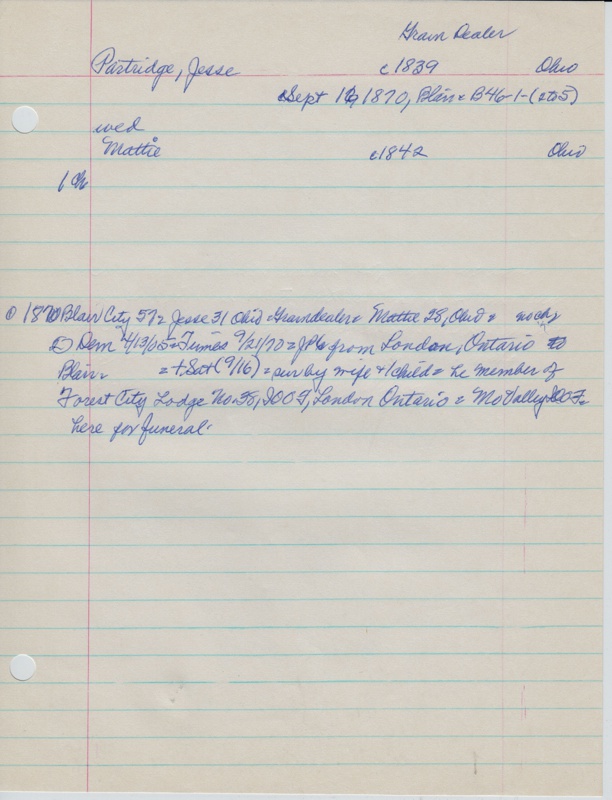 Grain Dealer
Partridge, Jesse c1839 Ohio
Sept 1870, Blair = B46-1-(2to5)
wed
Mattie c1842 Ohio
1 ch
1870 Blair City 57 = Jesse 31 Ohio = Graindealer = Mattie 28, Ohio = no ch
Dem 4/13/05 = Times 9/21/70 = JP from London, Ontario to
Blair = = + Sat (9/16) = sur by wife + 1 child = he member of
Forest City Lodge No 38, IOOF, London Ontario = Mo Valley IOOF
here for funeral.